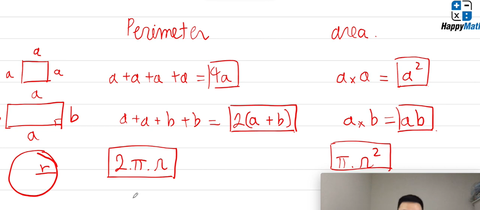 Perimeter area.
HappyMath
a
a a a + a + a + a = 4a a × a = a²
a
b a + a + b + b = 2(a + b) a × b = ab
a
r 2.π.r π.r²